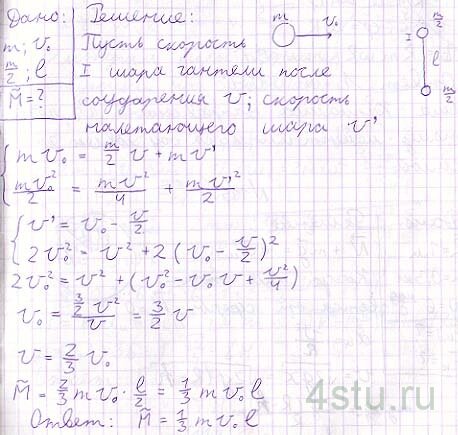 Дано: Решение:
m; v₀
m/2; l
M̃ = ?
Пусть скорость
I шара гантели после
соударения v; скорость
налетающего шара v'
m v₀
m/2
I
l
m/2
{ m v₀ = m/2 v + m v'
m v₀²/2 = m v²/4 + m v'²/2
{ v' = v₀ - v/2
2 v₀² = v² + 2 (v₀ - v/2)²
2 v₀² = v² + (v₀² - v₀ v + v²/4)
v₀ = 3/2 v²/v = 3/2 v
v = 2/3 v₀
M̃ = 2/3 m v₀ · l/2 = 1/3 m v₀ l
Ответ: M̃ = 1/3 m v₀ l
4stu.ru